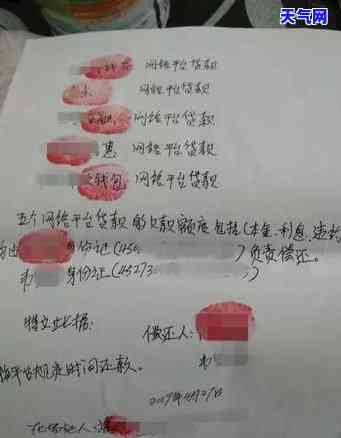 天气网
网络平台贷款
永 网络平台贷款
网络平台贷款
惠 网络平台贷款
钱包 网络平台贷款
五个网络平台贷款的欠款额度包括(本金、利息、违约
身份证(450 )负责偿还。
韦 身份证(45273 )
特立此据: 偿还人:
韦
按平台规定时间还款。
2017年4月27日